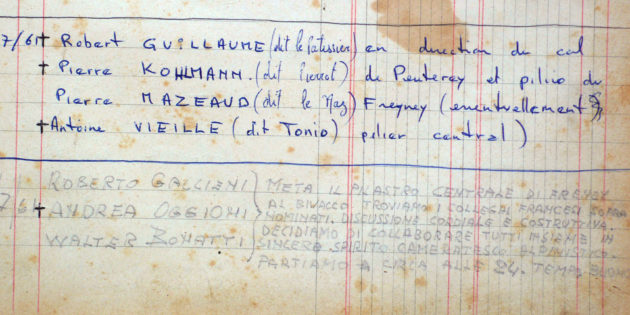 7/61 † Robert GUILLAUME (dit le Patissier) en direction du col
† Pierre KOHLMANN. (dit Pierrot) de Peuterey et pilier du
Pierre MAZEAUD (dit le Maz) Freyney (eventuellement
† Antoine VIEILLE (dit Tonio) pilier central)
ROBERTO GALLIENI META IL PILASTRO CENTRALE DI FRENEY
AL BIVACCO TROVIAMO I COLLEGHI FRANCESI SOPRA
7/61 † ANDREA OGGIONI NOMINATI. DISCUSSIONE CORDIALE E COSTRUTTIVA.
DECIDIAMO DI COLLABORARE TUTTI INSIEME IN
WALTER BONATTI SINCERO SPIRITO CAMERATESCO ALPINISTICO.
PARTIAMO A CIRCA ALLE 24. TEMPO BUONO